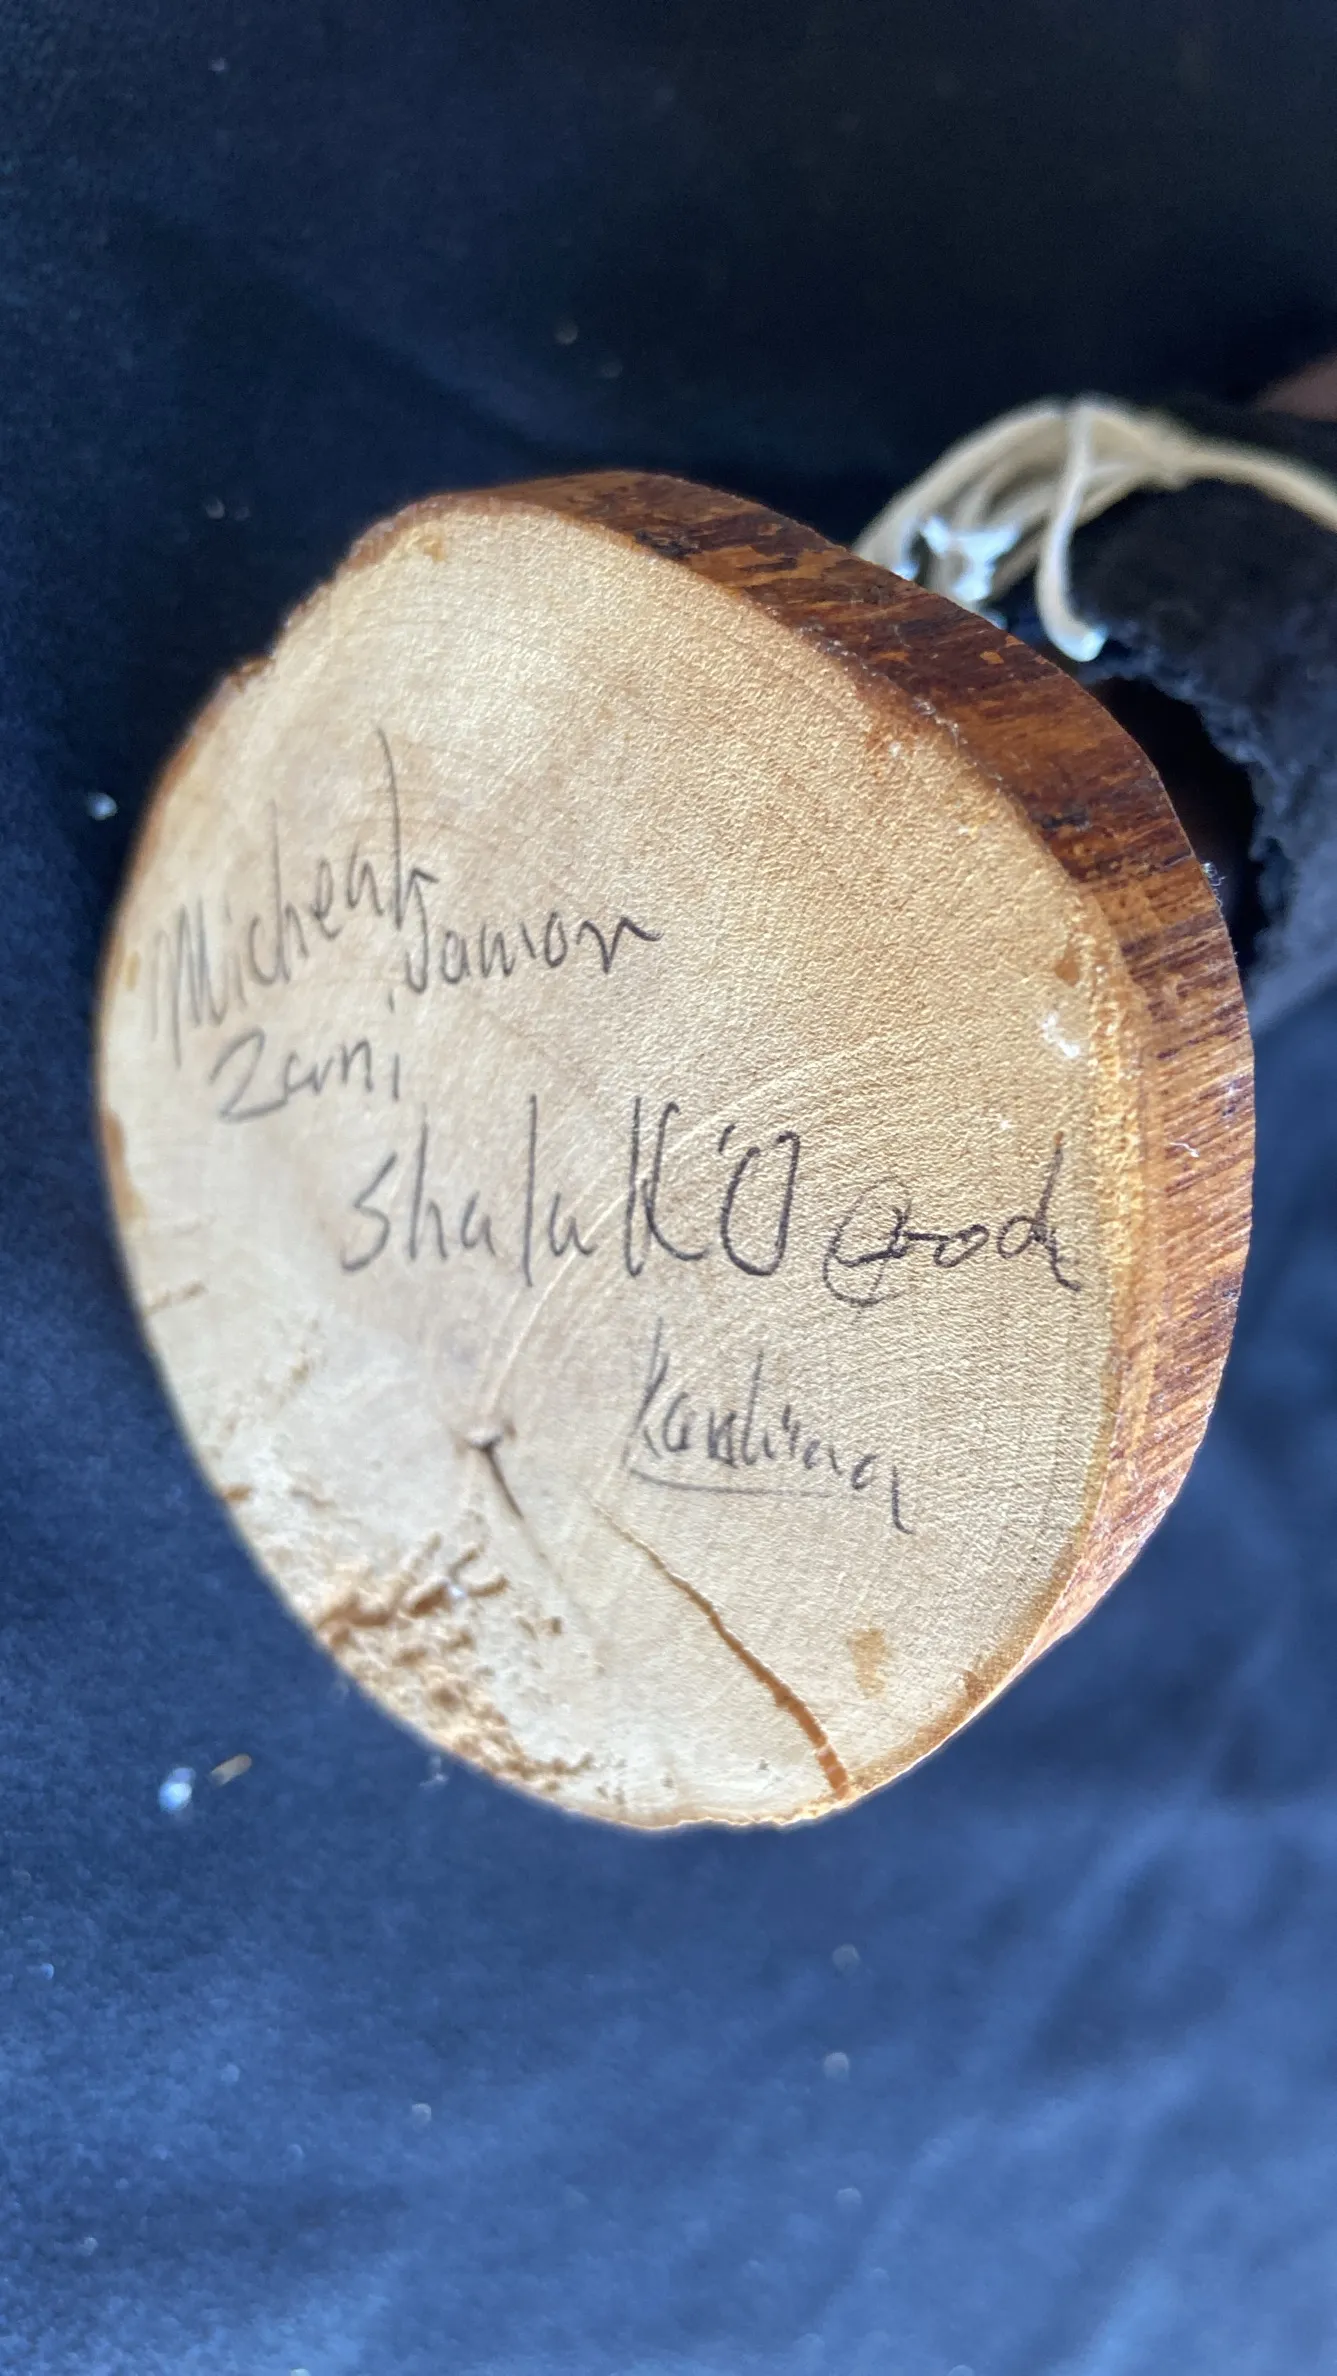 Micheal
Jamon
Zuni
ShalaKO God
Kachina